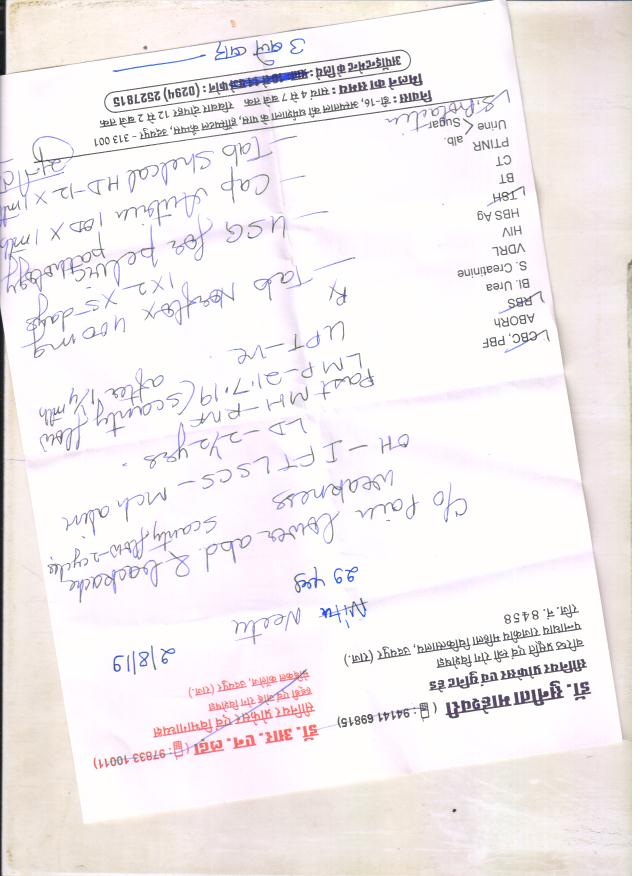 डॉ. सुनीता माहेश्वरी ( : 94141 69815)
सीनियर प्रोफेसर एवं यूनिट हेड
वरिष्ठ प्रसूति एवं स्त्री रोग विशेषज्ञ
पन्नाधाय राजकीय महिला चिकित्सालय, उदयपुर (राज.)
रजि. नं. 8458
डॉ. आर. एन. लढ्ढा ( : 97833 10011)
सीनियर प्रोफेसर एवं विभागाध्यक्ष
मेडिकल कॉलेज, उदयपुर (राज.)
2/8/19
Neetu
29 yrs
C/o Pain lower abd. & backache
weakness scanty flow - 2 cycles
OH - I FT LSCS - mch alive
LD - 2½ yrs.
Past MH - RNF
LMP - 21.7.19 (scanty flow
after 1¼ mth
UPT - ve
Rx
- Tab Norflox 400 mg
1x2 x 5 days
- USG for pelvic pathology
- Cap 1 OD x 1 mth
- Tab Shelcal HD-12 x 1 mth
CBC, PBF
ABORh
RBS
Bl. Urea
S. Creatinine
VDRL
HIV
HBS Ag
TSH
BT
CT
PTINR
Urine < alb. Sugar
S. Prolactin
निवास : डी-16, अस्पताल की धर्मशाला के पास, हॉस्पिटल कैम्पस, उदयपुर - 313 001
मिलने का समय : सायं 4 से 7 बजे तक रविवार दोपहर 12 से 2 बजे तक
अपॉइन्टमेन्ट के लिये : फोन : (0294) 2527815
3 बजे बाद